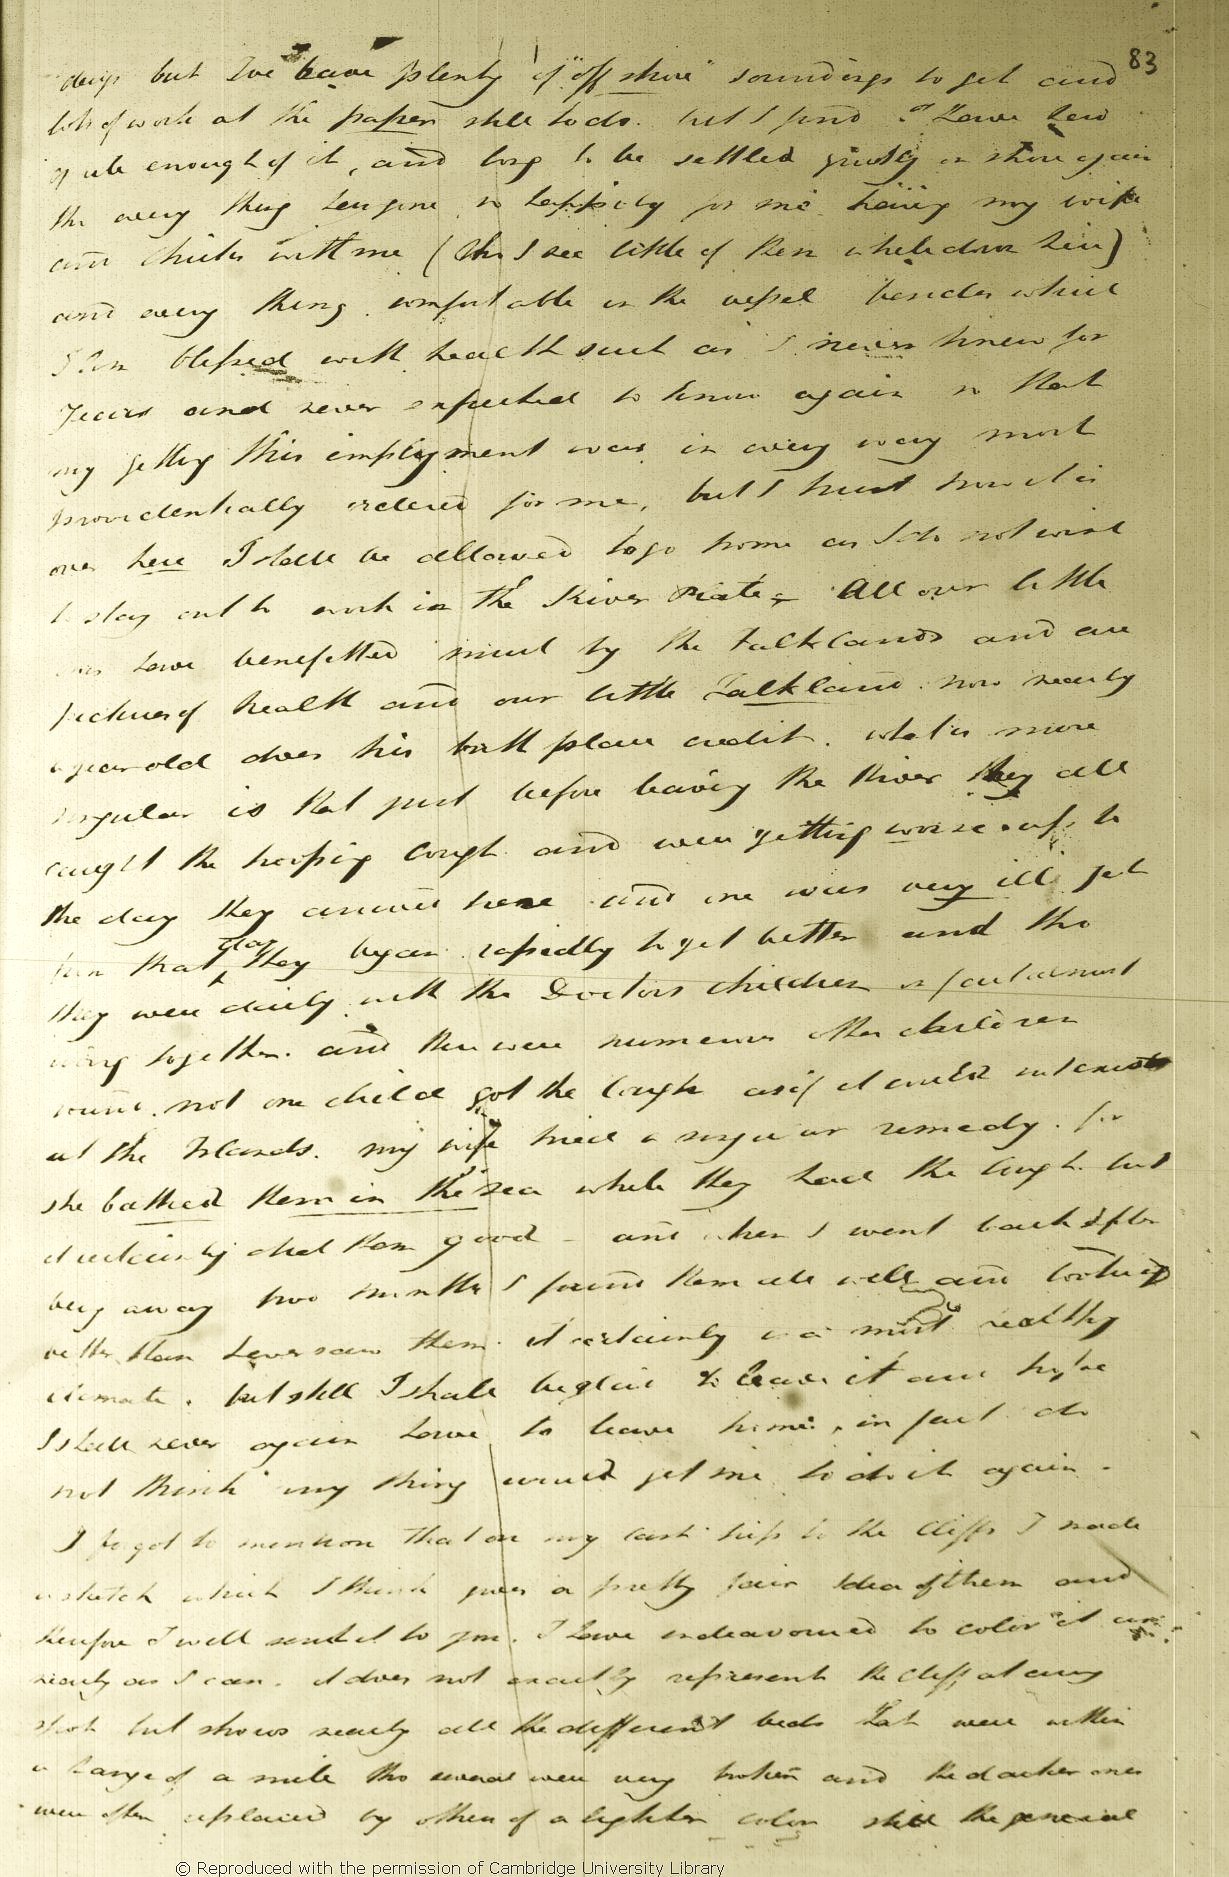 83
days but I've have plenty of "off shore" soundings to get and
lots of work at the papers still to do. but I find I have had
quite enough of it, and long to be settled quietly on shore again
tho every thing has gone so happily for me having my wife
and chicks with me (tho I see little of them while down here)
and every thing comfortable in the vessel besides which
I am blessed with health such as I never knew for
years and never expected to know again so that
my getting this employment was in every way most
providentially ordered for me, but I trust now it is
over here I shall be allowed to go home as I do not wish
to stay out to work in the River Plate. All our little
ones have benefitted much by the Falklands and are
pictures of health and our little Falkland now nearly
a year old does his birth place credit. what is more
singular is that just before leaving the River they all
caught the hooping Cough and were getting worse up to
the day they arrived here and one was very ill yet
from that day they began rapidly to get better and tho
they were daily with the Doctors children in fact almost
living together. and there were numerous other children
round. not one child got the Cough as if it could not exist
at the Islands. my wife tried a singular remedy. for
she bathed them in the sea while they had the cough but
it certainly did them good – and when I went back after
being away two months I found them all well and looking
better than I ever saw them. it certainly is a most healthy
climate. but still I shall be glad to leave it and hope
I shall never again have to leave home, in fact do
not think any thing would get me to do it again.
I forgot to mention that on my last trip to the Cliffs I made
a sketch which I think gives a pretty fair Idea of them and
therefore I will send it to you. I have endeavoured to color it as
nearly as I can. it does not exactly represent the cliff at any
spot but shows nearly all the different beds that were within
a range of a mile tho several were very broken and the darker ones
were often replaced by others of a lighter color still the general
© Reproduced with the permission of Cambridge University Library